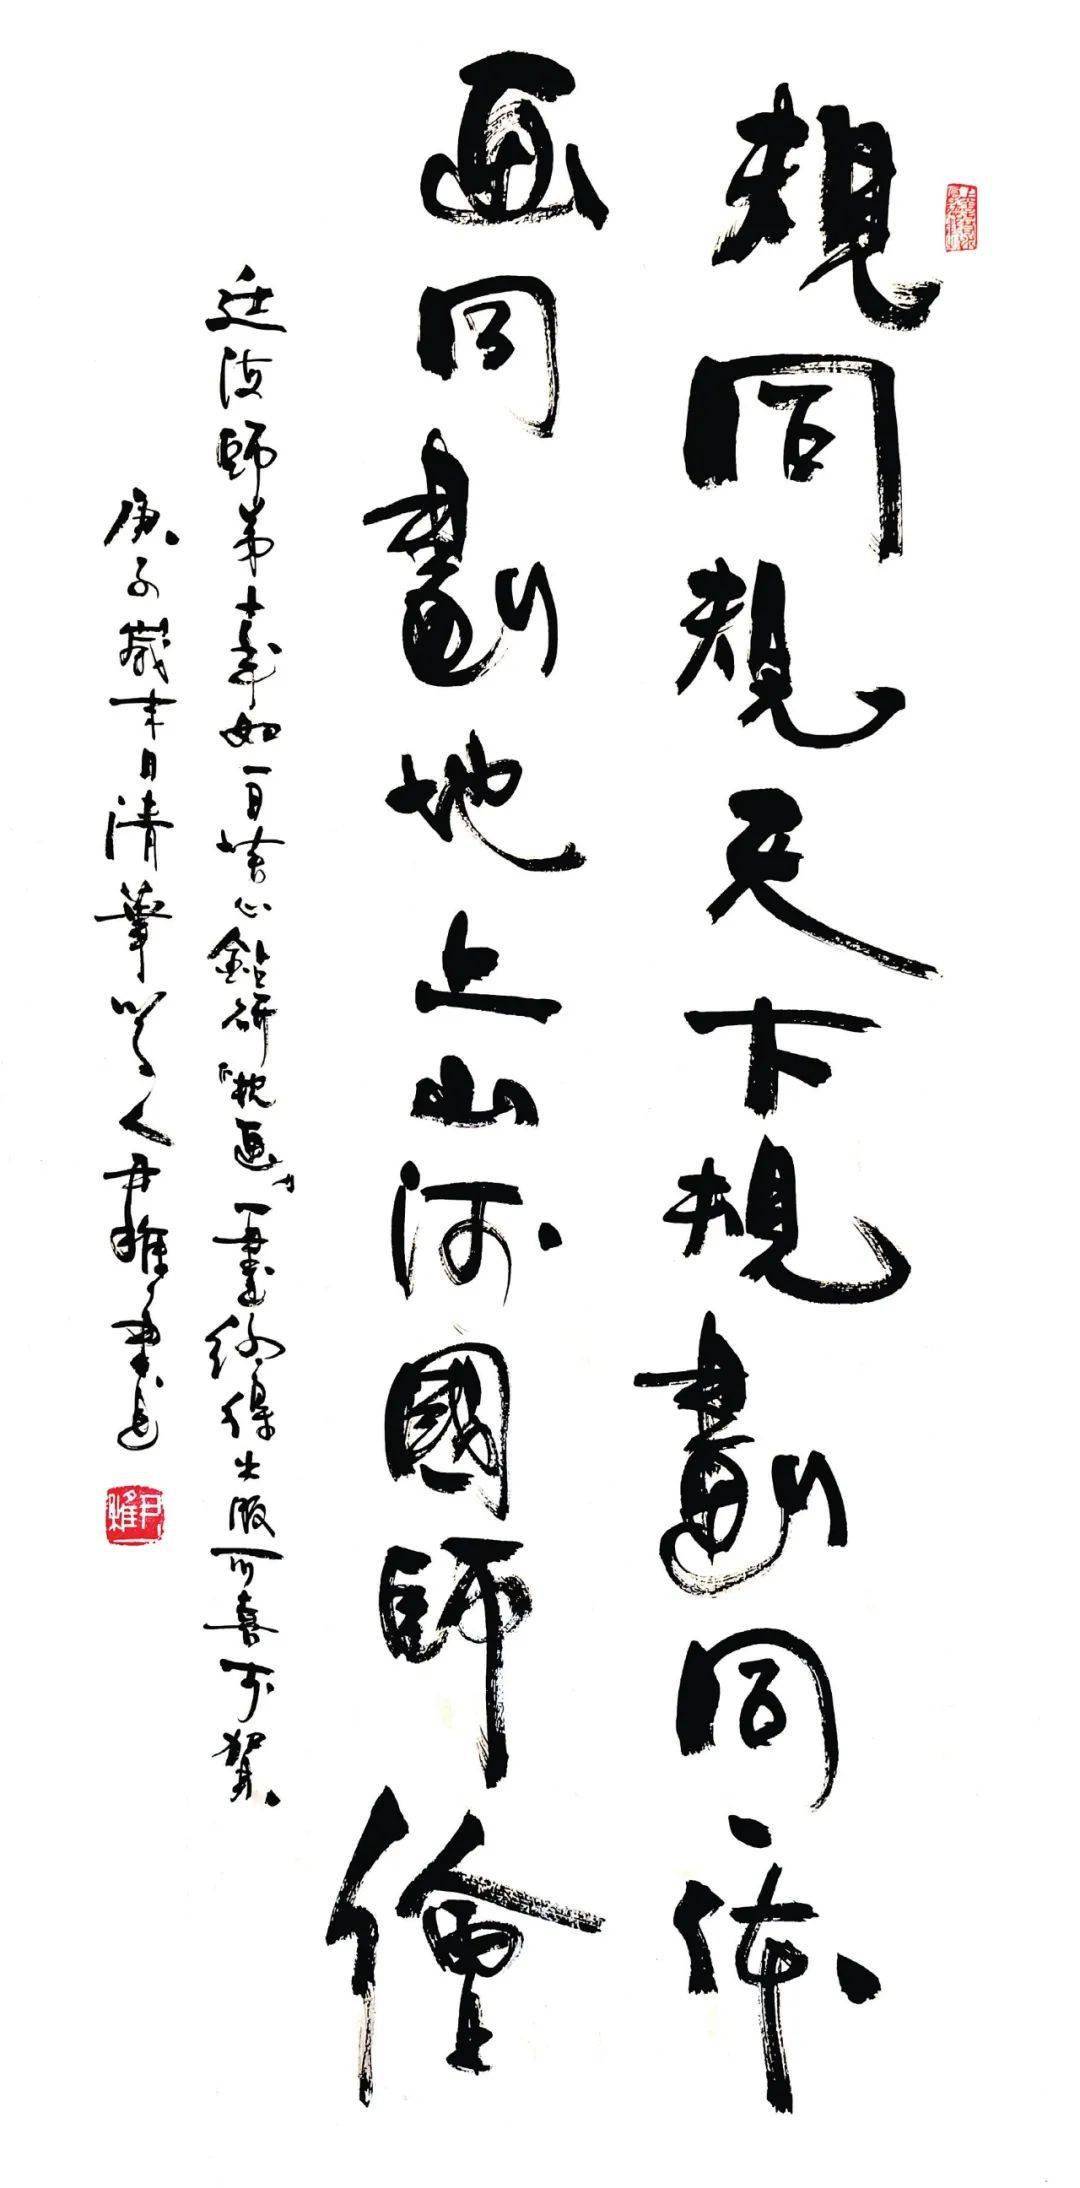 規同規天下規劃同一体
画同劃地上山河國師繪
師弟十年如一日苦心鑽研「画」一書終得出版可喜可賀
庚子歲末日清華學人尹稚書
尹稚